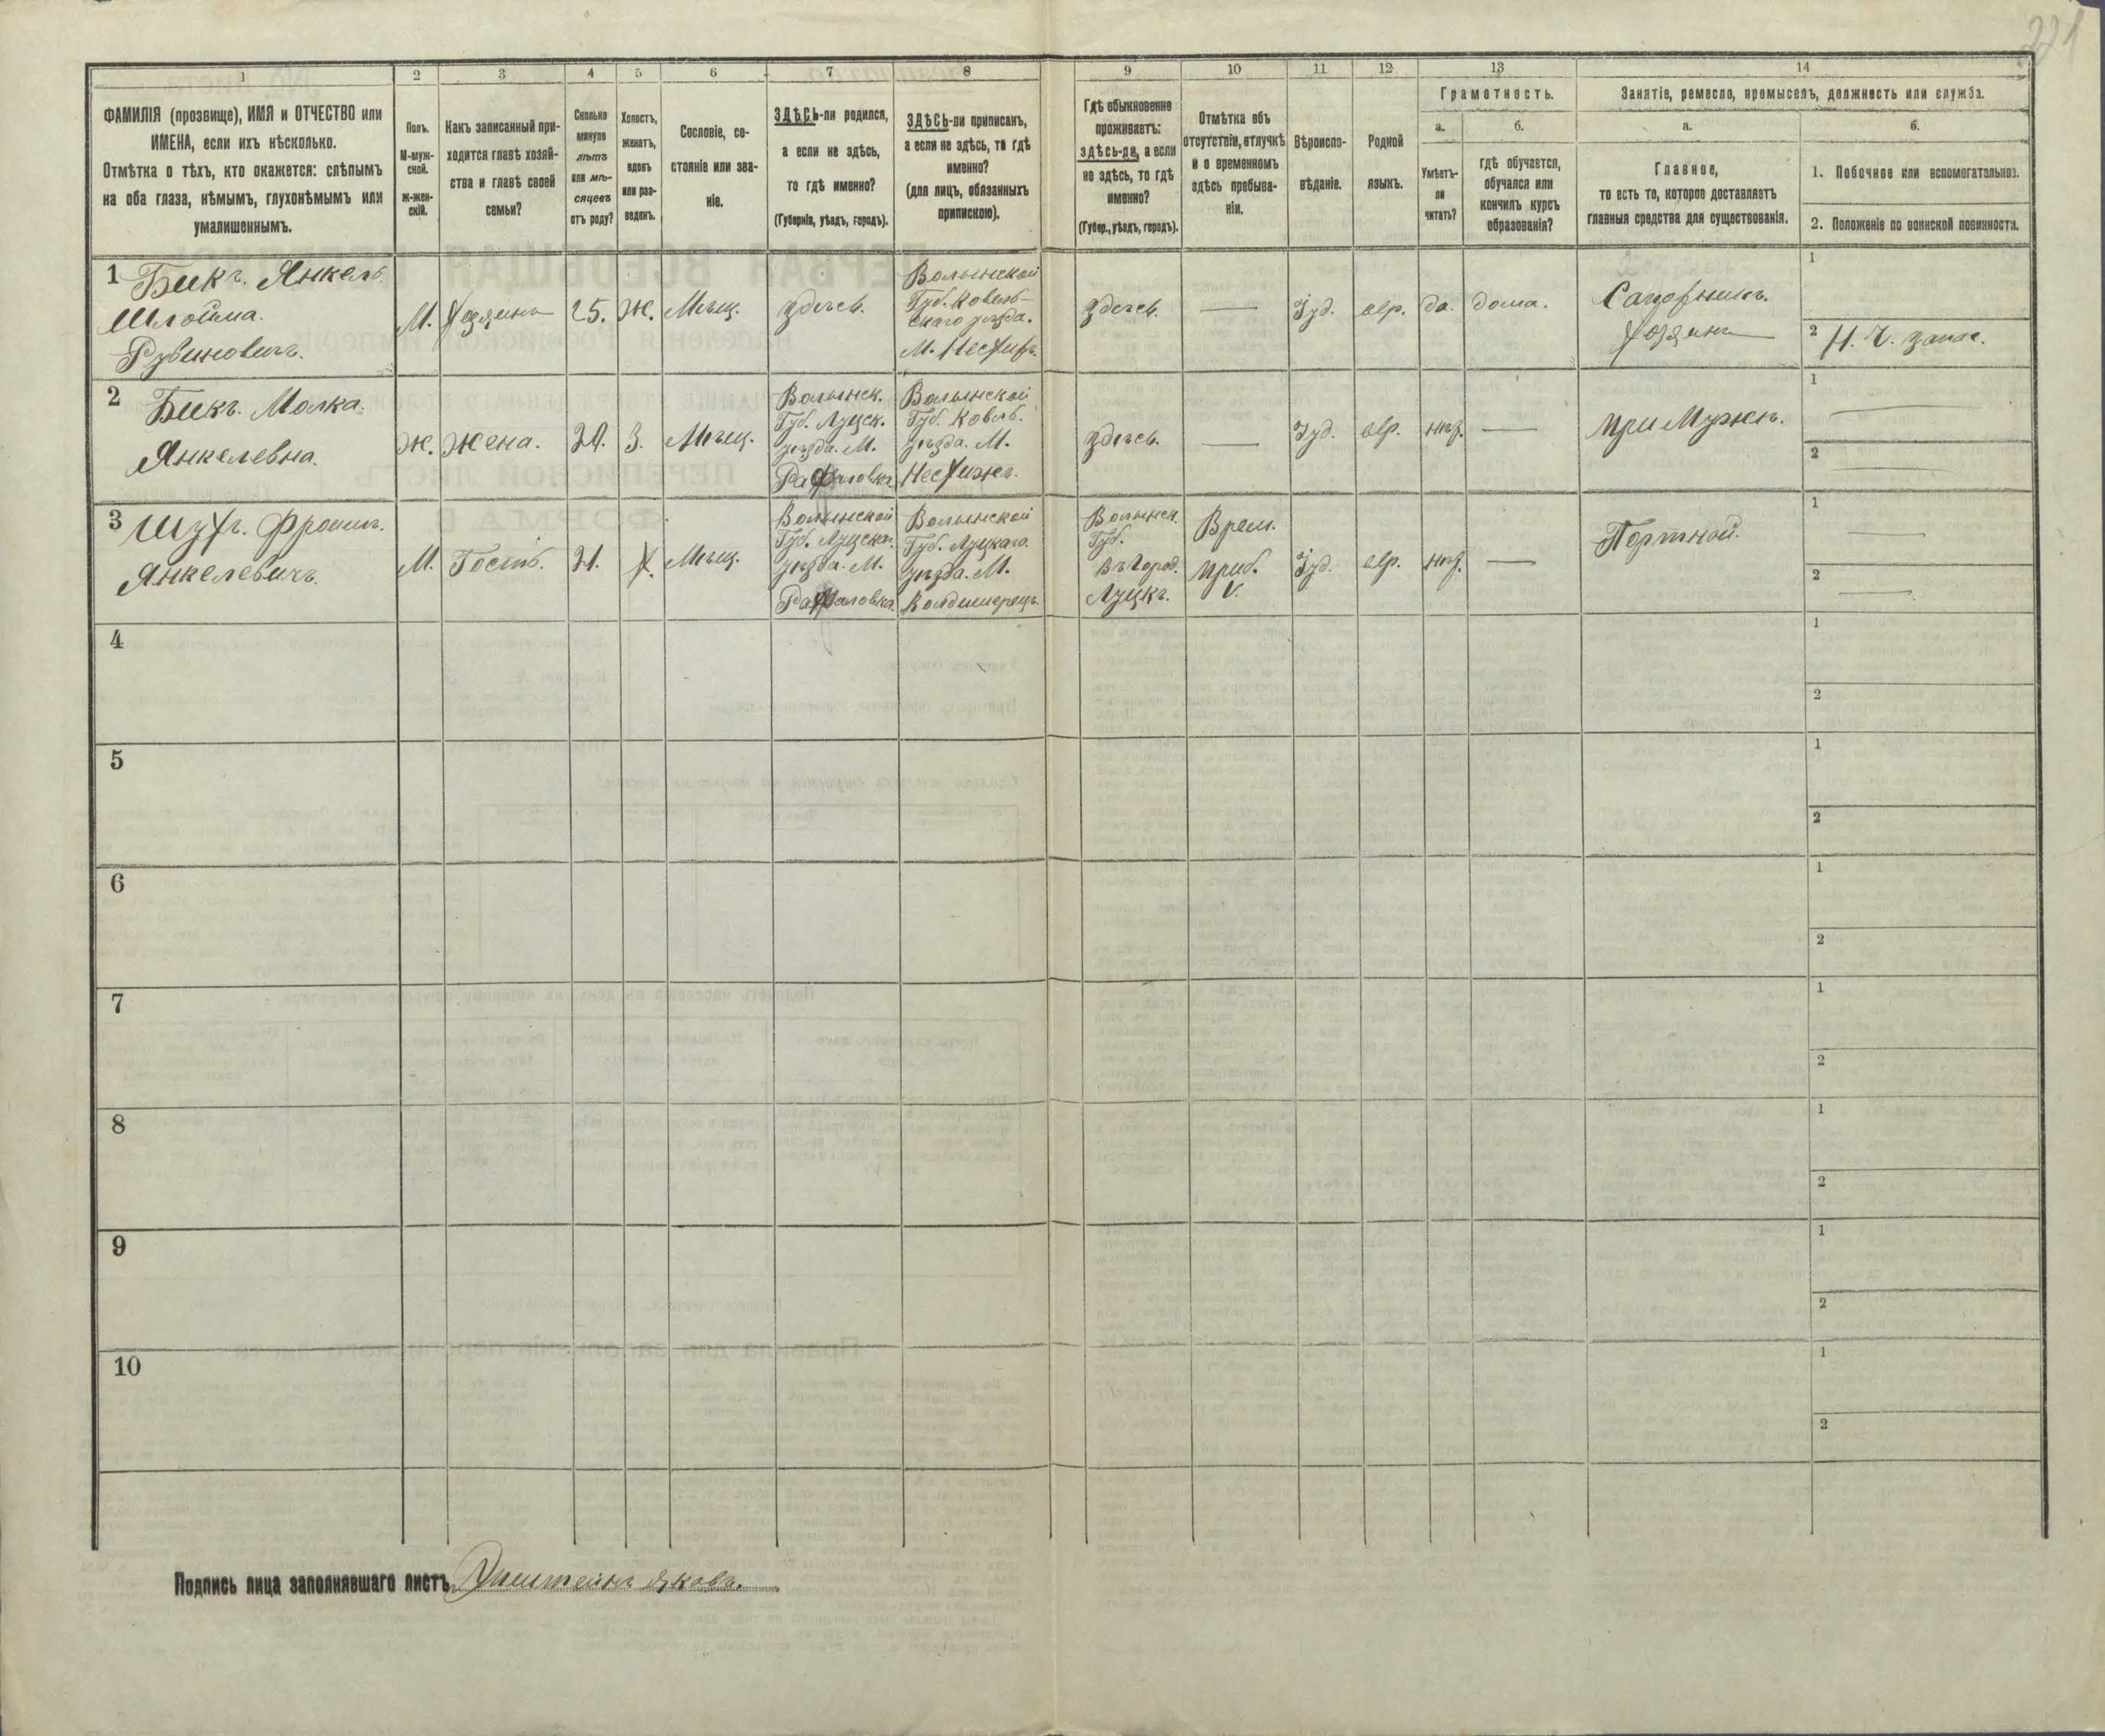 221
1
2
3
4
5
6
7
8
9
10
11
12
13
14
ФАМИЛІЯ (прозвище), ИМЯ и ОТЧЕСТВО или
ИМЕНА, если ихъ нѣсколько.
Отмѣтка о тѣхъ, кто окажется: слѣпымъ
на оба глаза, нѣмымъ, глухонѣмымъ или
умалишеннымъ.
Полъ.
М-муж-
ской.
Ж-жен-
скій.
Какъ записанный при-
ходится главѣ хозяй-
ства и главѣ своей
семьи?
Сколько
минуло
лѣтъ
или мѣ-
сяцевъ
отъ роду?
Холостъ,
женатъ,
вдовъ
или раз-
веденъ.
Сословіе, со-
стояніе или зва-
ніе.
ЗДѢСЬ-ли родился,
а если не здѣсь,
то гдѣ именно?
(Губернія, уѣздъ, городъ).
ЗДѢСЬ-ли приписанъ,
а если не здѣсь, то гдѣ
именно?
(для лицъ, обязанныхъ
припискою).
Гдѣ обыкновенно
проживаетъ:
здѣсь-ли, а если
не здѣсь, то гдѣ
именно?
(Губер., уѣздъ, городъ).
Отмѣтка объ
отсутствіи, отлучкѣ
и о временномъ
здѣсь пребыва-
ніи.
Вѣроиспо-
вѣданіе.
Родной
языкъ.
Грамотность.
а.
Умѣетъ-
ли
читать?
б.
гдѣ обучается,
обучался или
кончилъ курсъ
образованія?
Занятіе, ремесло, промыселъ, должность или служба.
а.
Главное,
то есть то, которое доставляетъ
главныя средства для существованія.
б.
1. Побочное или вспомогательное.
2. Положеніе по воинской повинности.
1 Бикъ. Янкель
Шлойма.
Рувиновичъ.
М.
Хозяинъ
25.
Ж.
Мѣщ.
здѣсь.
Волынской
Губ. Ковель-
скаго уѣзда.
М.
здѣсь.
—
Іуд.
евр.
да.
дома.
Сапожникъ.
Хозяинъ
1
2 Н. Ч. запас.
2 Бикъ. Малка.
Янкелевна.
Ж.
Жена.
20.
З.
Мѣщ.
Волынск.
Губ. Луцск.
уѣзда. М.
Рафаловка
Волынской
Губ. Ковель.
уѣзда. М.
здѣсь.
—
Іуд.
евр.
нѣт.
—
При Мужѣ.
1 —
2 —
3 Шухъ. Фроим.
Янкелевичъ.
М.
Гость.
21.
Х.
Мѣщ.
Волынской
Губ. Луцскаг.
уѣзда. М.
Рафаловка.
Волынской
Губ. Луцкаго.
уѣзда. М.
Волынск.
Губ.
въ Город.
Луцкъ.
Врем.
приб.
V.
Іуд.
евр.
нѣт.
—
Портной.
1 —
2 —
4
1
2
5
1
2
6
1
2
7
1
2
8
1
2
9
1
2
10
1
2
Подпись лица заполнявшаго листъ